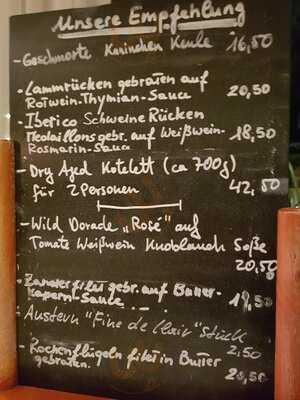 Unsere Empfehlung
- Geschmorte Kaninchen Keule 16,50
- Lammrücken gebraten auf
Rotwein-Thymian-Sauce 20,50
- Iberico Schweine Rücken
Medaillons gebr. auf Weißwein-
Rosmarin-Sauce 18,50
- Dry Aged Kotelett (ca 700g)
für 2 Personen 42,50
- Wild Dorade "Rosé" auf
Tomate Weißwein Knoblauch Soße
20,50
- Zanderfilet gebr. auf Butter-
Kapern-Sauce 19,50
- Austern "Fine de Clair" Stück
2,50
- Rochenflügeln filet in Butter
gebraten. 20,50